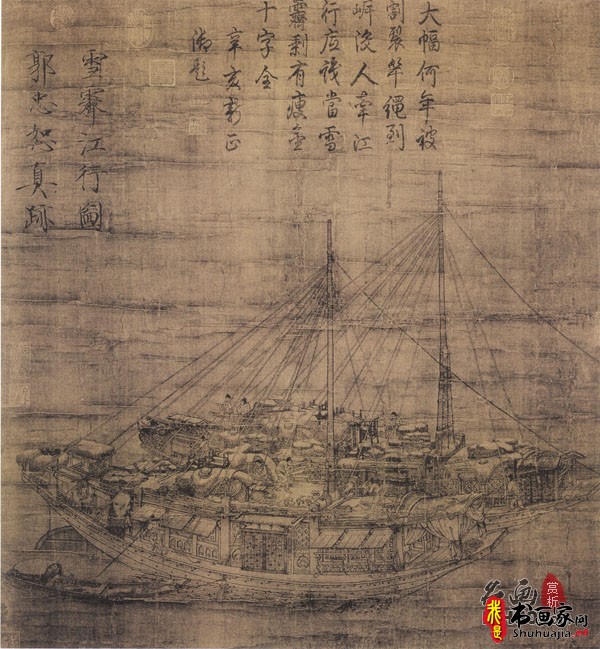 大幅何年被
割裂竿繩到
岍没人牽江
行应識當雪
霽剩有瘦金
十字全
辛亥新正
御题
雪霽江行圖
郭忠恕真跡
名画
赏析
我是
书画家网
Shuhuajia.net